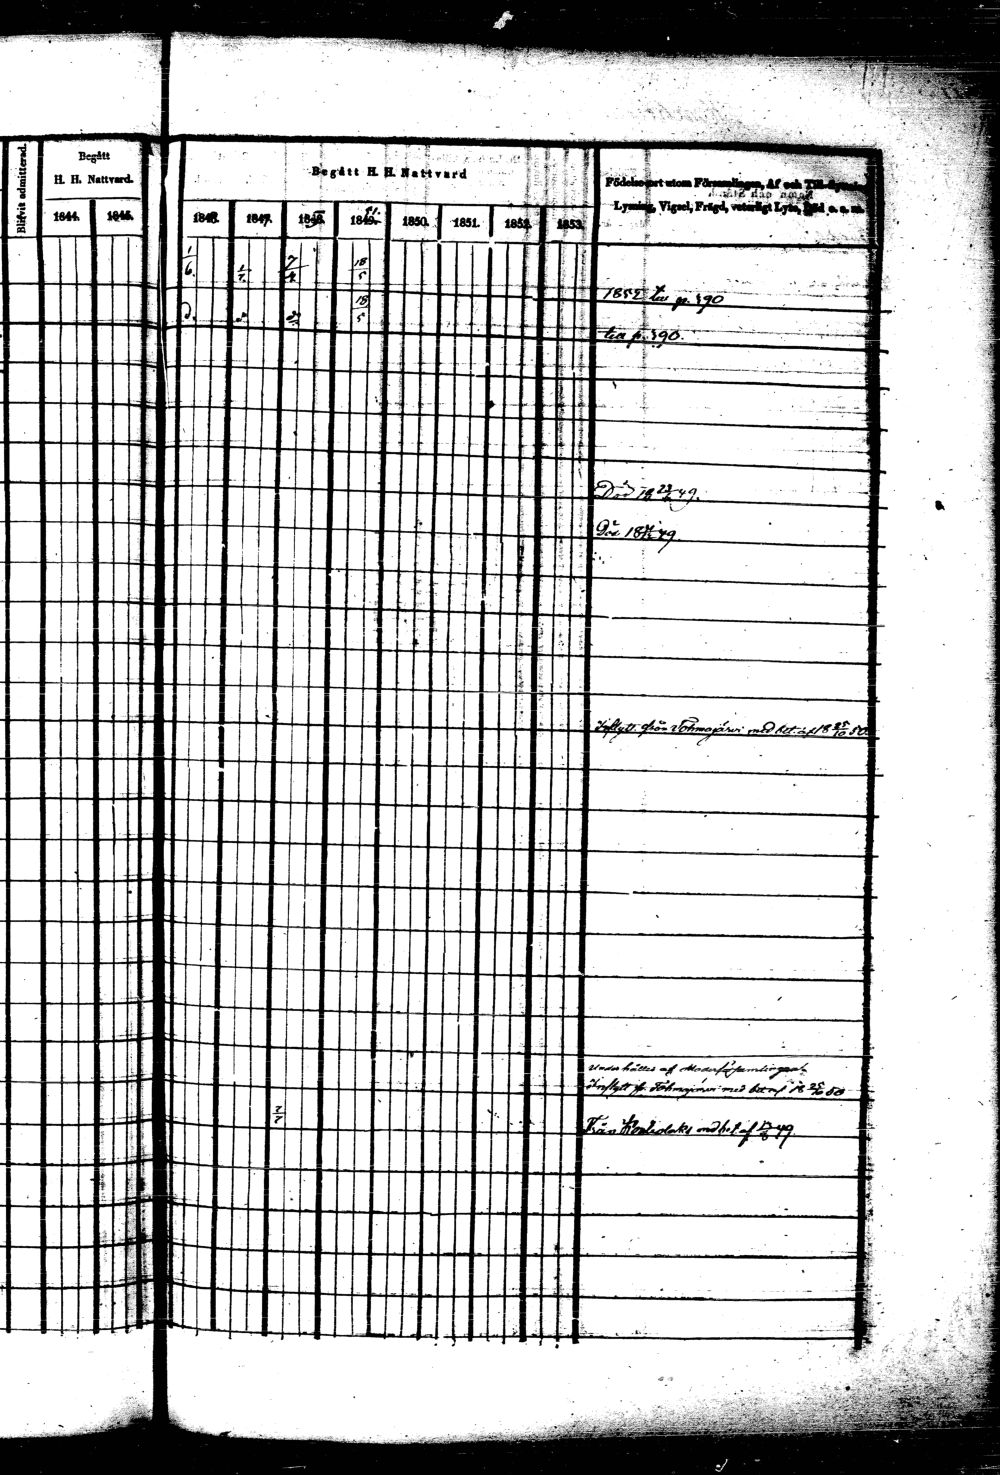 Blifvit admitterad.
Begått
H. H. Nattvard.
1844. 1845.
Begått H. H. Nattvard
1846. 1847. 1848. 1849. 1850. 1851. 1852. 1853.
Födelse-ort utom Församlingen, Af och Till-flyttning
Lysning, Vigsel, Frägd, veterligt Lyte, Död o. s. m.
1/6. 1/7. 7/4 18/5
18/5
1852 tra p. 390
tra p. 390.
Död 18 23/ 49.
Död 18 49.
Inflytt. från Tohmajärvi med bet. af 18 25/10 50
Underhålles af Moderförsamlingen
Inflytt fr. Tohmajärvi med bet af 18 25/10 50
7/7
Från Kontiolaks med bet af 49